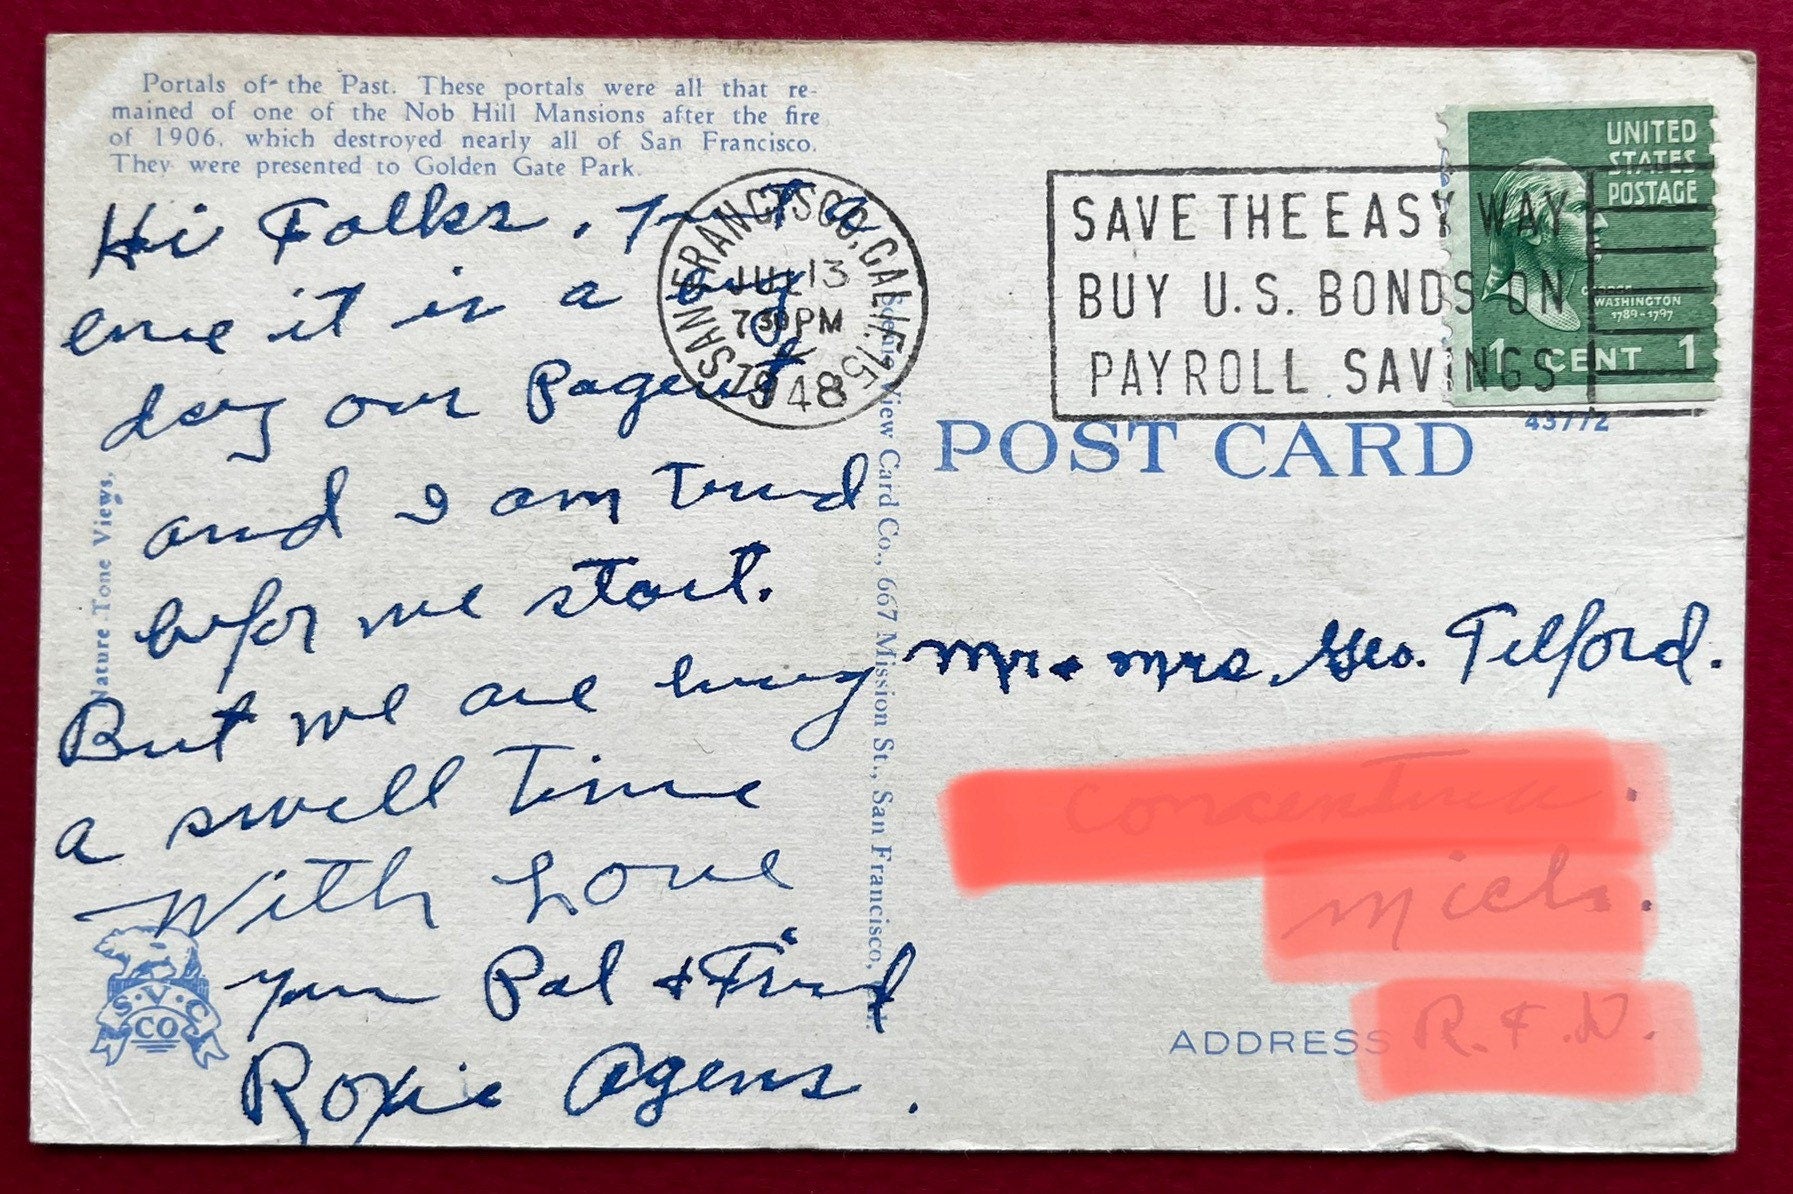 Portals of the Past. These portals were all that re-
mained of one of the Nob Hill Mansions after the fire
of 1906, which destroyed nearly all of San Francisco.
They were presented to Golden Gate Park.
Hi Folks. a
it is a big
day our Pagent
and I am Tired
befor we start.
But we are having
a swell Time
With Love
your Pal & Frind
Roxie Agens.
Nature Tone Views.
S.V.C
CO
Scenic View Card Co., 667 Mission St., San Francisco,
SAN FRANCISCO, CALIF. 15
JUL 13
7 30 PM
1948
SAVE THE EASY WAY
BUY U.S. BONDS ON
PAYROLL SAVINGS
UNITED
STATES
POSTAGE
GEORGE
WASHINGTON
1789-1797
1 CENT 1
43772
POST CARD
Mr & Mrs. Geo. Telford.
Mich.
ADDRESS R.F.D.